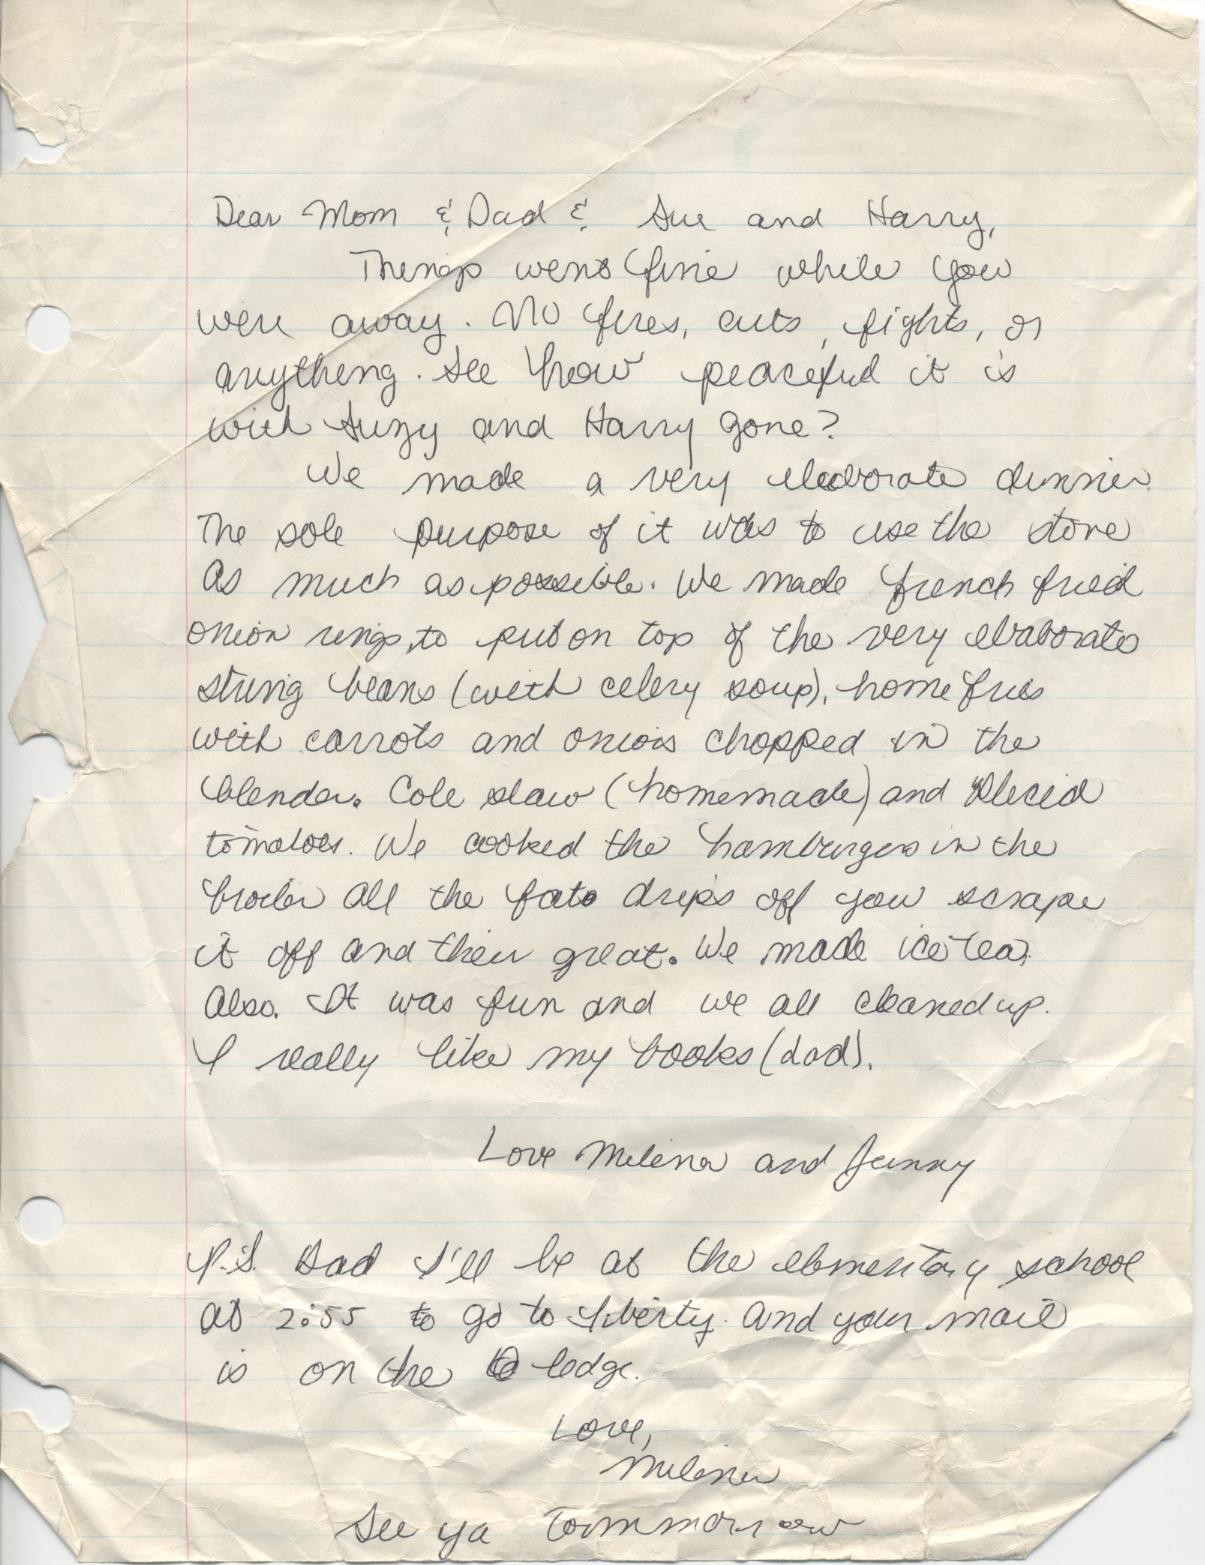 Dear Mom & Dad & Sue and Harry,
Things went fine while you
were away. No fires, cuts, fights, or
anything. See how peaceful it is
with Suzy and Harry gone?
We made a very elaborate dinner.
The sole purpose of it was to use the stove
as much as possible. We made french fried
onion rings, to put on top of the very elaborate
string beans (with celery soup), home fries
with carrots and onions chopped in the
blender. Cole slaw (homemade) and sliced
tomatoes. We cooked the hamburgers in the
broiler all the fat drips off you scrape
it off and their great. We made ice tea,
Also. It was fun and we all cleaned up.
I really like my books (dad).
Love Milena and Jenny
P.S. Dad I'll be at the elementary school
at 2:55 to go to Liberty. And your mail
is on the ledge.
Love,
Milena
See ya tommorrow